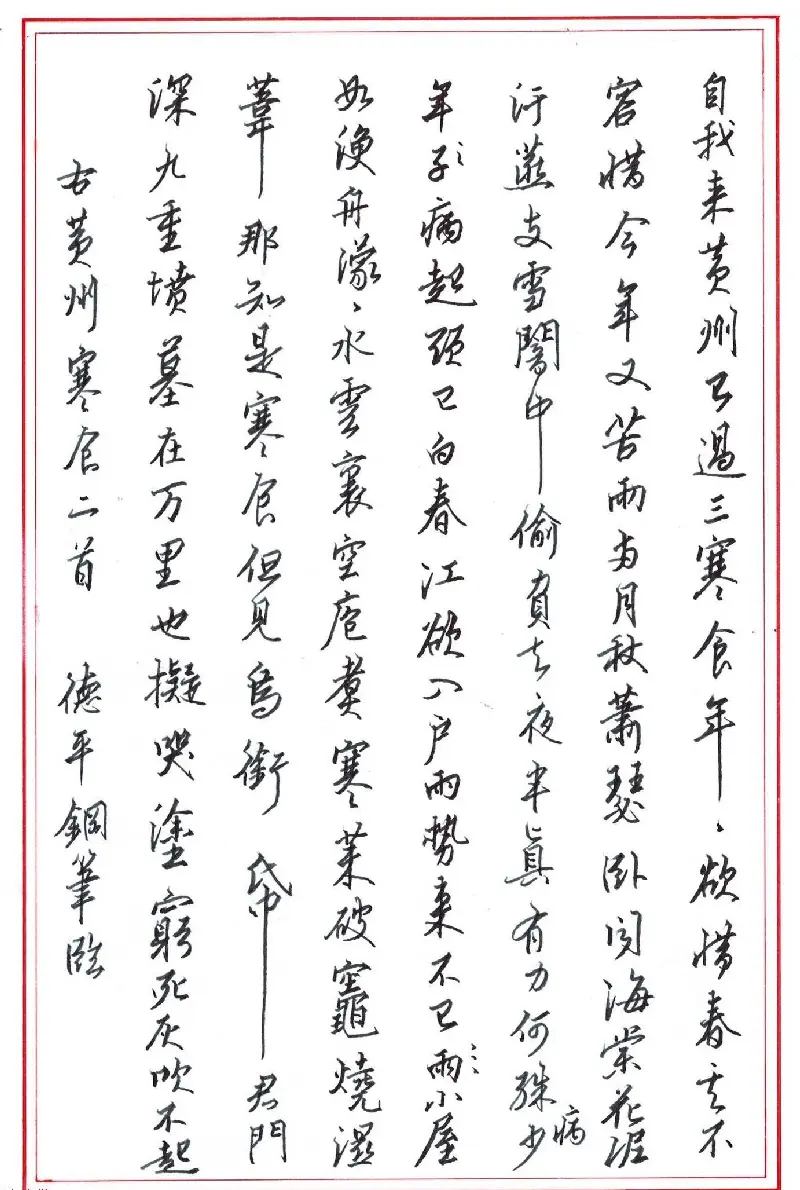 自我来黄州已過三寒食年〻欲惜春去不
容惜今年又苦雨两月秋蕭瑟卧聞海棠花泥
汙燕支雪闇中偷負去夜半真有力何殊少病
年子病起頭已白春江欲入户雨勢来不已雨小屋
如漁舟濛〻水雲裏空庖煮寒菜破竈燒濕
葦那知是寒食但見烏銜帋君門
深九重墳墓在万里也擬哭塗窮死灰吹不起
右黄州寒食二首 德平鋼筆臨